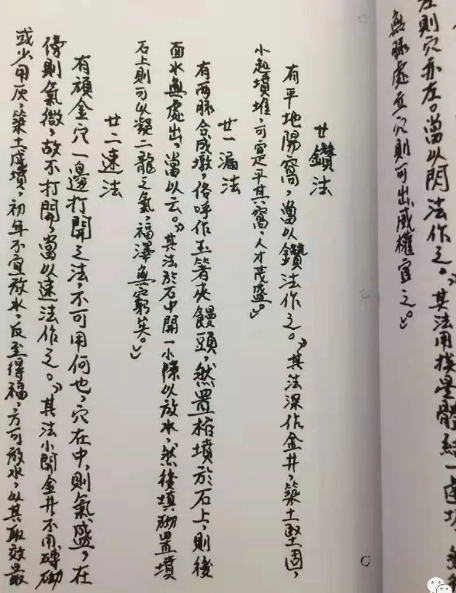 左則穴亦左。當以閃法作之。』其法用模星體結一處
無脉處立穴則可出威權宜之。』
廿鑽法
有平地陽窩，當以鑽法作之。』其法深作金井，築土堅固，
小起墳堆，可定平其窩，人才茂盛。』
廿一漏法
有兩脉合成墩，俗呼作玉箸夾饅頭，然置棺墳於石上，則後
面水無處出。當以云。』其法於石中開一小隙以放水，然後填砌置墳
石上則可以凝二龍之氣，福澤無窮矣。』
廿二速法
有頑金穴一邊打開之法，不可用何也，穴在中，則氣盛，在
傍則氣微，故不打開，當以速法作之。』其法小開金井不用磚砌
或少用灰，築土成墳，初年不宜放水，反至得福，方可放水，以其取效最